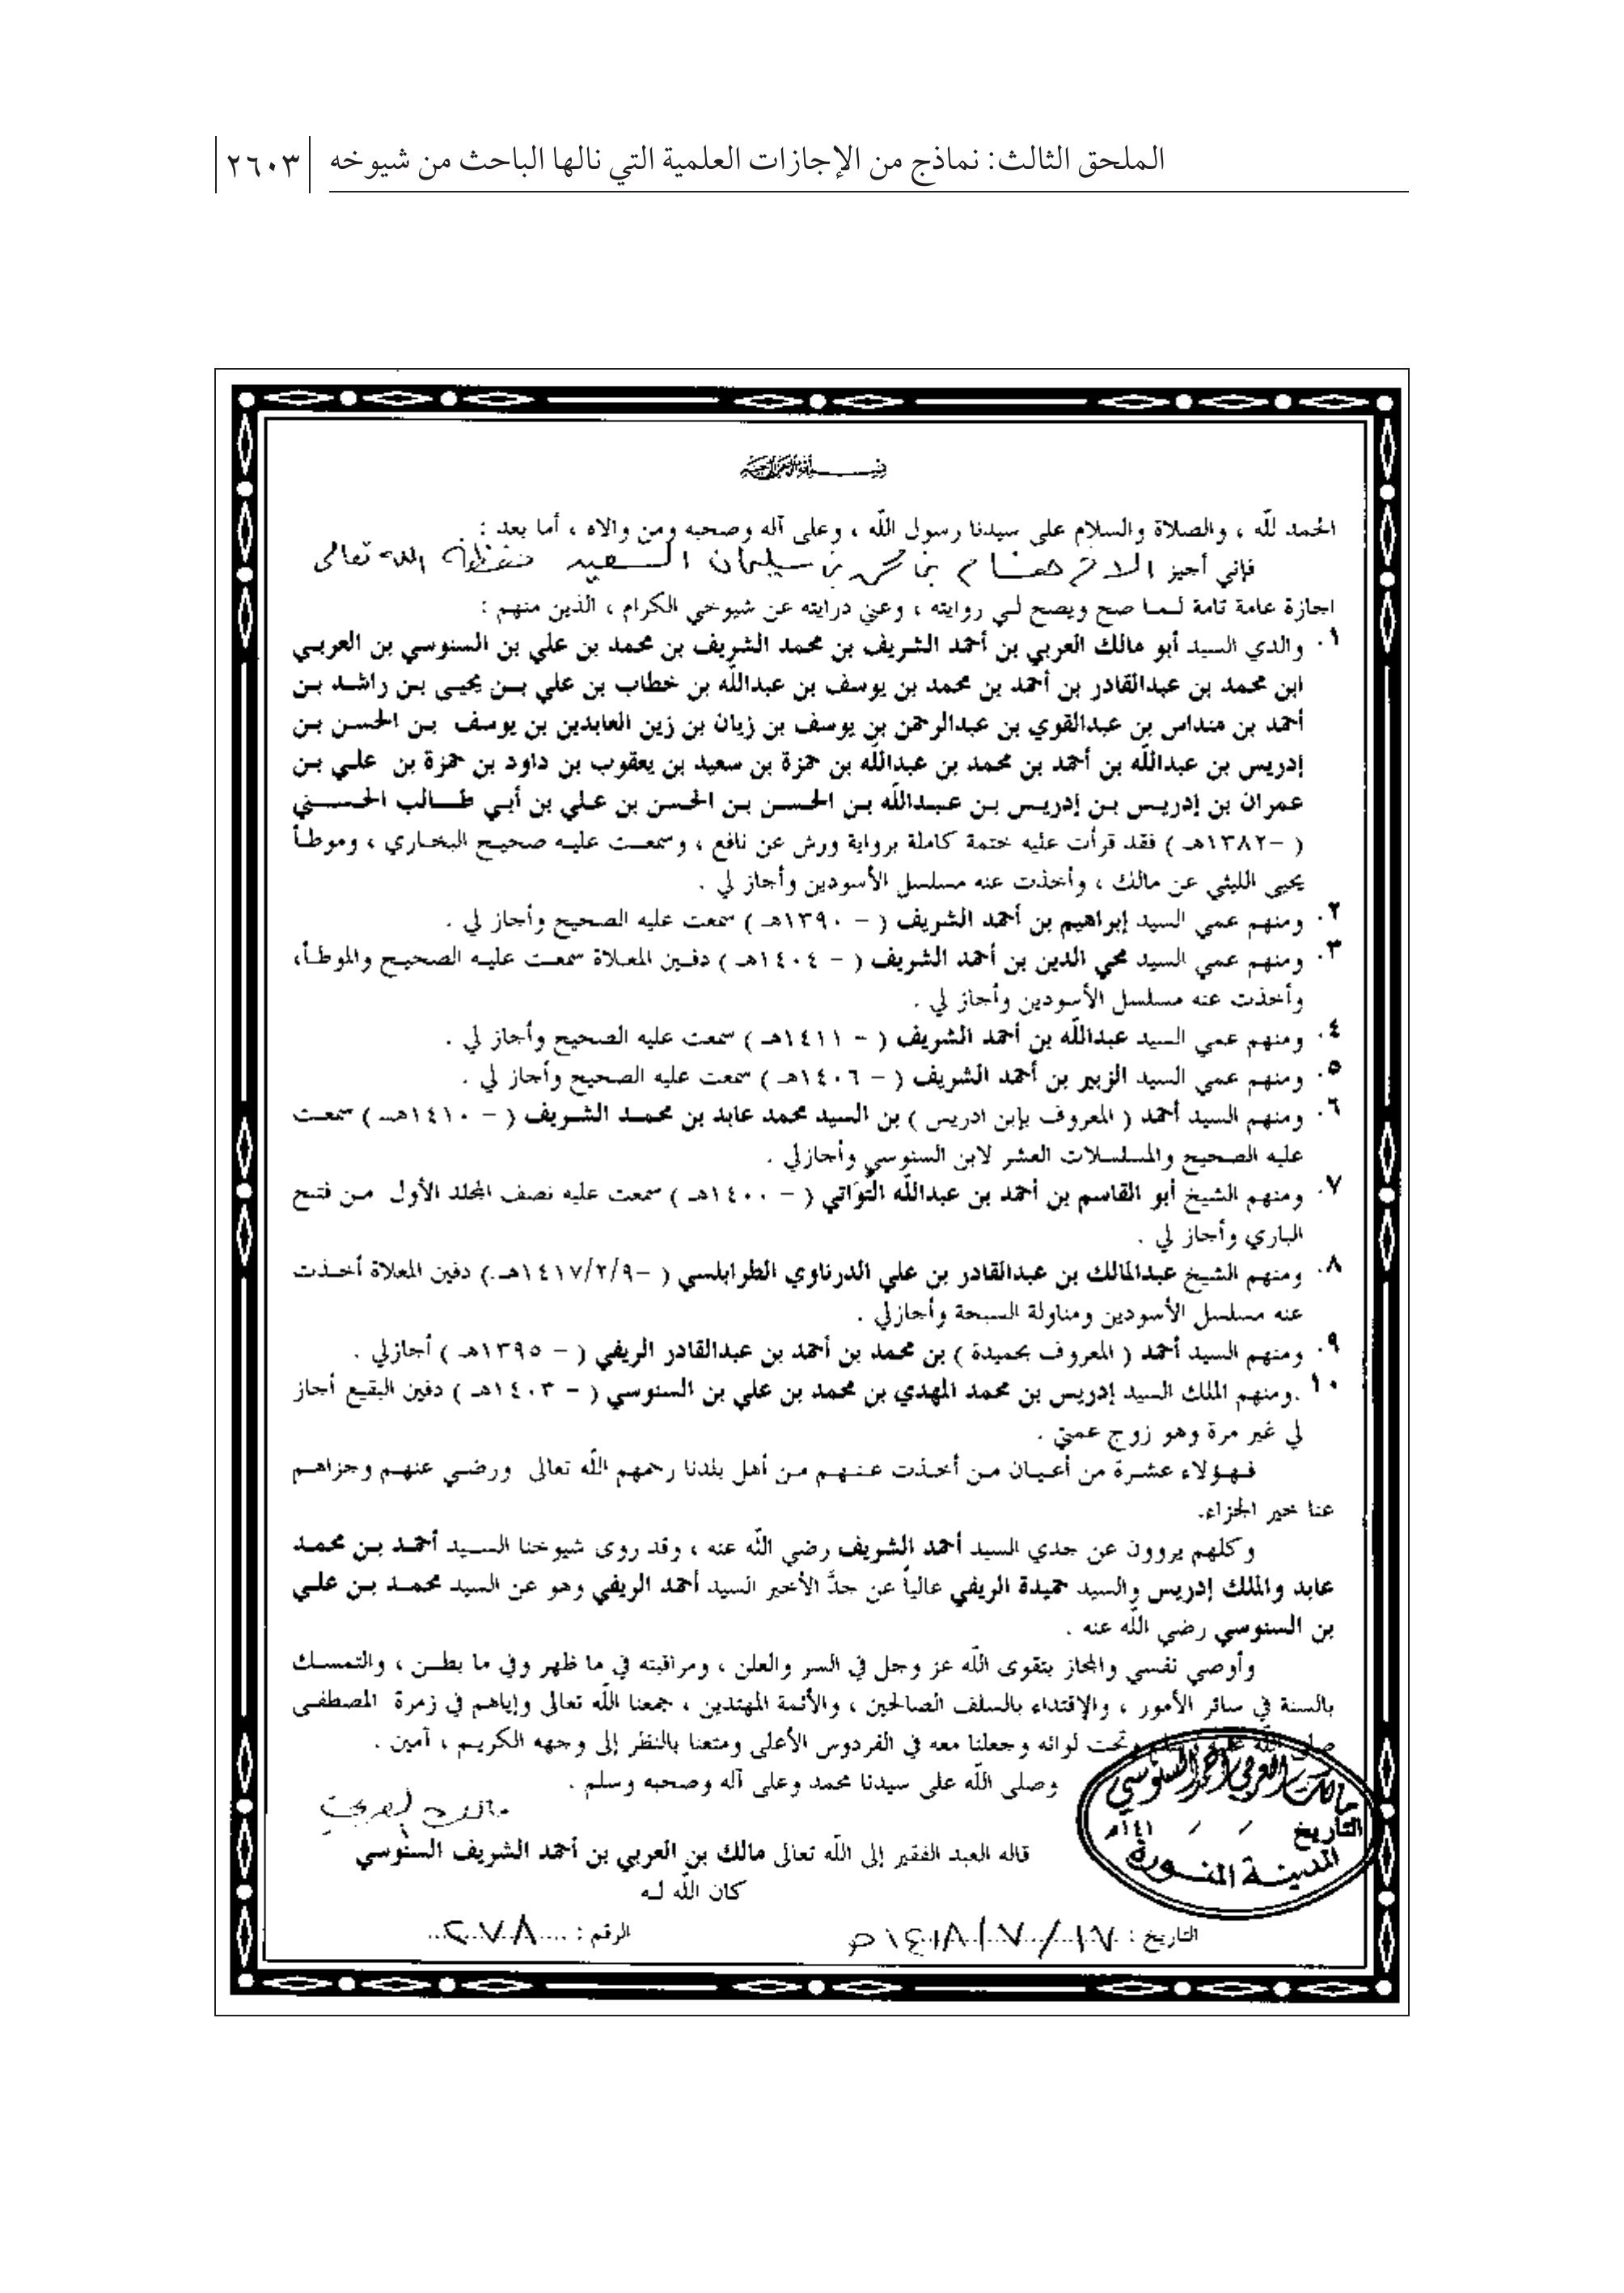 الملحق الثالث: نماذج من الإجازات العلمية التي نالها الباحث من شيوخه
٢٦٠٣
الحمد للّه ، والصلاة والسلام على سيدنا رسول اللّه ، وعلى آله وصحبه ومن والاه ، أما بعد :
فإني أجيز الاخ هشام بن محمد بن سليمان السعيد حفظه الله تعالى
اجازة عامة تامة لـما صح ويصح لـي روايته ، وعني درايته عن شيوخي الكرام ، الذين منهم :
١. والدي السيد أبو مالك العربي بن أحمد الشريف بن محمد الشريف بن محمد بن علي بن السنوسي بن العربـي
ابن محمد بن عبدالقادر بن أحمد بن محمد بن يوسف بن عبداللّه بن خطاب بن علي بـن يحيـى بـن راشـد بـن
أحمد بن منداس بن عبدالقوي بن عبدالرحمن بن يوسف بن زيان بن زين العابدين بن يوسف بـن الحسـن بـن
إدريس بن عبداللّه بن أحمد بن محمد بن عبداللّه بن حمزة بن سعيد بن يعقوب بن داود بن حمزة بن علـي بـن
عمران بن إدريـس بـن إدريـس بـن عـبـداللّه بـن الحسـن بـن الحسن بن عـلي بن أبـي طـالب الحسـني
( –١٣٨٢هـ ) فقد قرأت عليه ختمة كاملة برواية ورش عن نافع ، وسمعـت عليـه صحيـح البخـاري ، وموطـأ
يحيى الليثي عن مالك ، وأخذت عنه مسلسل الأسودين وأجاز لي .
٢. ومنهم عمي السيد إبراهيم بن أحمد الشريف ( – ١٣٩٠هـ ) سمعت عليه الصحيح وأجاز لي .
٣. ومنهم عمي السيد محي الدين بن أحمد الشريف ( – ١٤٠٤هـ ) دفـين المعـلاة سمعـت عليـه الصحيـح والموطـأ،
وأخذت عنه مسلسل الأسودين وأجاز لي .
٤. ومنهم عمي السيد عبداللّه بن أحمد الشريف ( – ١٤١١هـ ) سمعت عليه الصحيح وأجاز لي .
٥. ومنهم عمي السيد الزبير بن أحمد الشريف ( – ١٤٠٦هـ ) سمعت عليه الصحيح وأجاز لي .
٦. ومنهم السيد أحمد ( المعروف بإبن ادريس ) بن السيد محمد عابد بن محمـد الشـريف ( – ١٤١٠هـ ) سمعـت
عليه الصحيح والمسلسلات العشر لابن السنوسي وأجازلي .
٧. ومنهم الشيخ أبو القاسم بن أحمد بن عبداللّه التَّوَاتي ( – ١٤٠٠هـ ) سمعت عليه نصف المجلد الأول مـن فتـح
الباري وأجاز لي .
٨. ومنهم الشيخ عبدالمالك بن عبدالقادر بن علي الدرناوي الطرابلسي ( –١٤١٧/٢/٩هـ ) دفين المعلاة أخـذت
عنه مسلسل الأسودين ومناولة السبحة وأجازلي .
٩. ومنهم السيد أحمد ( المعروف بحميدة ) بن محمد بن أحمد بن عبدالقادر الريفي ( – ١٣٩٥هـ ) أجازلي .
١٠.ومنهم الملك السيد إدريس بن محمد المهدي بن محمد بن علي بن السنوسي ( – ١٤٠٣هـ ) دفين البقيع أجاز
لي غير مرة وهو زوج عمتي .
فـهـؤلاء عشـرة من أعـيـان مـن أخـذت عـنـهـم مـن أهل بلدنا رحمهم اللّه تعالى ورضـي عنهـم وجزاهـم
عنا خير الجزاء.
وكلهم يروون عن جدي السيد أحمد الشريف رضي اللّه عنه ، وقد روى شيوخنا السـيد أحمـد بـن محمـد
عابد والملك إدريس والسيد حميدة الريفي عالياً عن جدَّ الأخير السيد أحمد الريفي وهو عن السيد محمـد بـن علـي
بن السنوسي رضي اللّه عنه .
وأوصي نفسي والمجاز بتقوى اللّه عز وجل في السر والعلن ، ومراقبته في ما ظهر وفي ما بطـن ، والتمسـك
بالسنة في سائر الأمور ، والإقتداء بالسلف الصالحين ، والأئمة المهتدين ، جمعنا اللّه تعالى وإياهم في زمرة المصطفـى
صلى اللّه عليه وسلم وتحت لوائه وجعلنا معه في الفردوس الأعلى ومتعنا بالنظر إلى وجهه الكريم ، آمين .
وصلى اللّه على سيدنا محمد وعلى آله وصحبه وسلم .
مالك العربي
قاله العبد الفقير إلى اللّه تعالى مالك بن العربي بن أحمد الشريف السنوسي
كان اللّه لـه
مالك العربي أحمد السنوسي
التاريخ / / ١٤١هـ
المدينة المنورة
التاريخ : ١٤١٨/٧/١٧هـ
الرقم : ٢٠٧٨